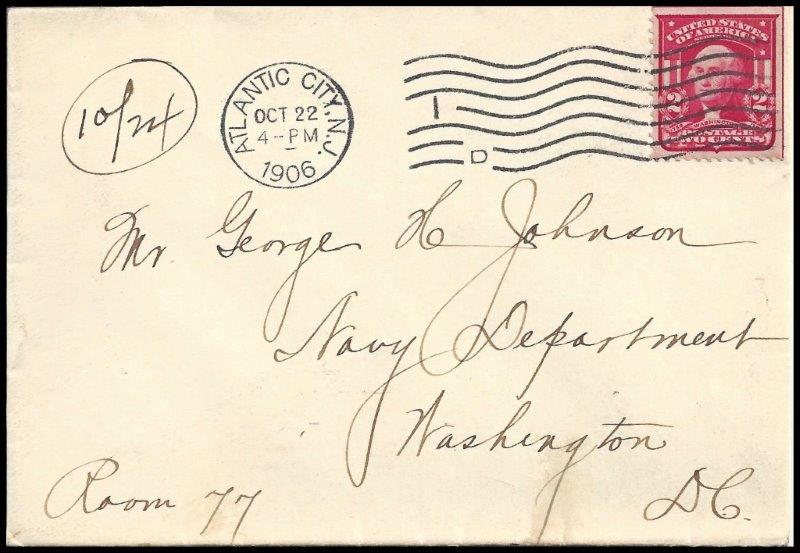 UNITED STATES
OF AMERICA
2 2
WASHINGTON
POSTAGE
TWO CENTS
10/24
ATLANTIC CITY, N.J.
OCT 22
4-PM
1906
I
D
Mr George H Johnson
Navy Department
Washington
Room 77 DC.